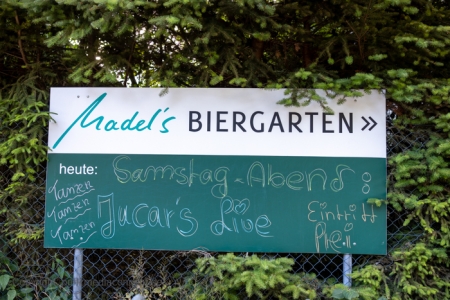 Madel's BIERGARTEN »
heute: Samstag-Abend:
Tanzen
Tanzen
Tanzen
Jucar's Live
Eintritt
frei.